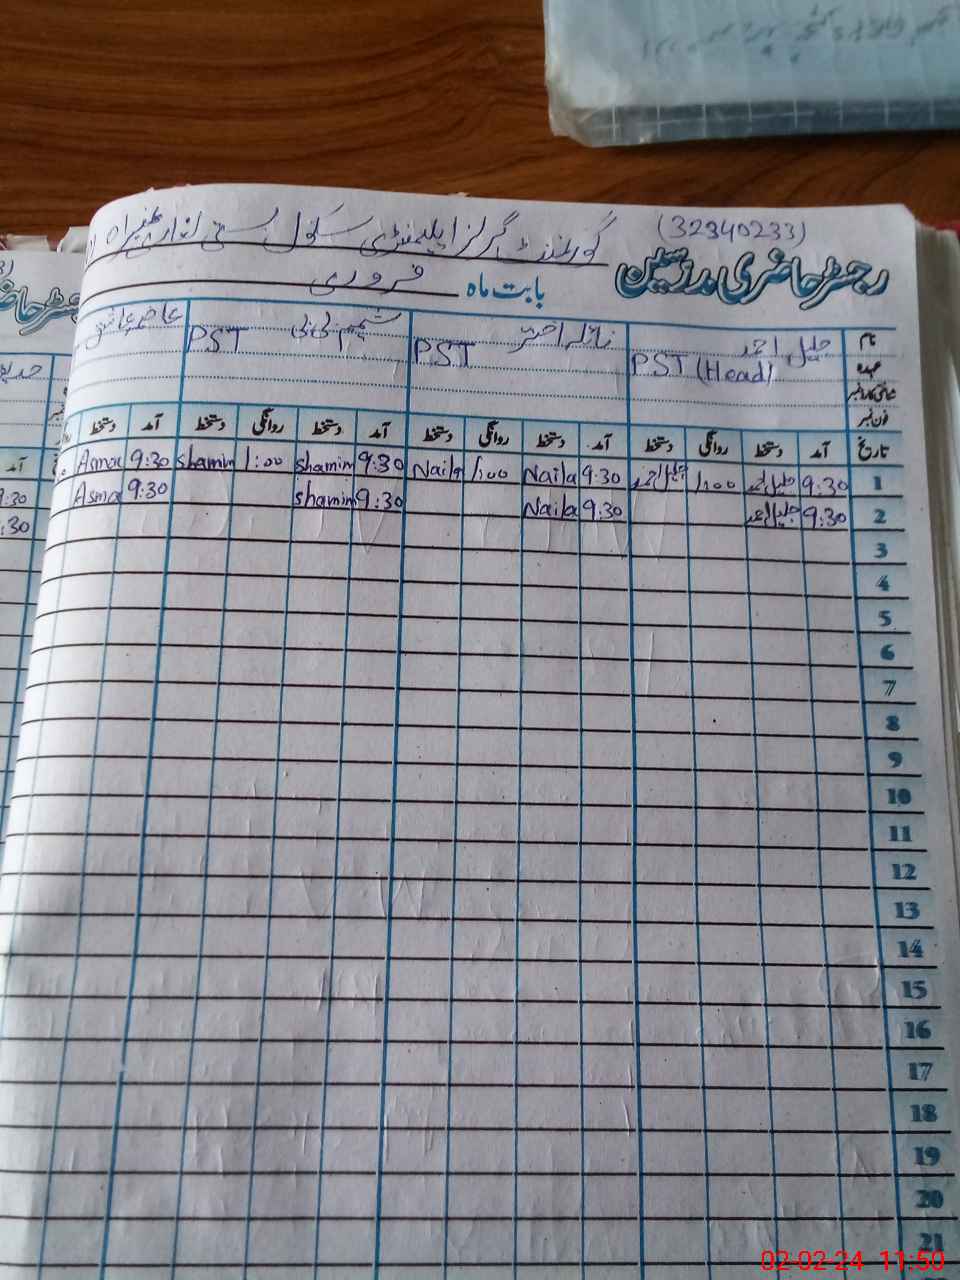 (32340233)
گورنمنٹ گرلز ایلیمنٹری سکول بستی لغاری
رجسٹر حاضری مدرسین
بابت ماہ فروری
نام جلیل احمد نائلہ اختر شمیم بی بی
عہدہ PST (Head) PST PST
شناختی کارڈ نمبر
فون نمبر
تاریخ آمد دستخط روانگی دستخط آمد دستخط روانگی دستخط آمد دستخط روانگی دستخط آمد دستخط
1 9:30 جلیل احمد 1:00 جلیل احمد 9:30 Naila 1:00 Naila 9:30 shamim 1:00 shamim 9:30 Asma
2 9:30 جلیل احمد 9:30 Naila 9:30 shamim 9:30 Asma
3
4
5
6
7
8
9
10
11
12
13
14
15
16
17
18
19
20
21
02-02-24 11:50